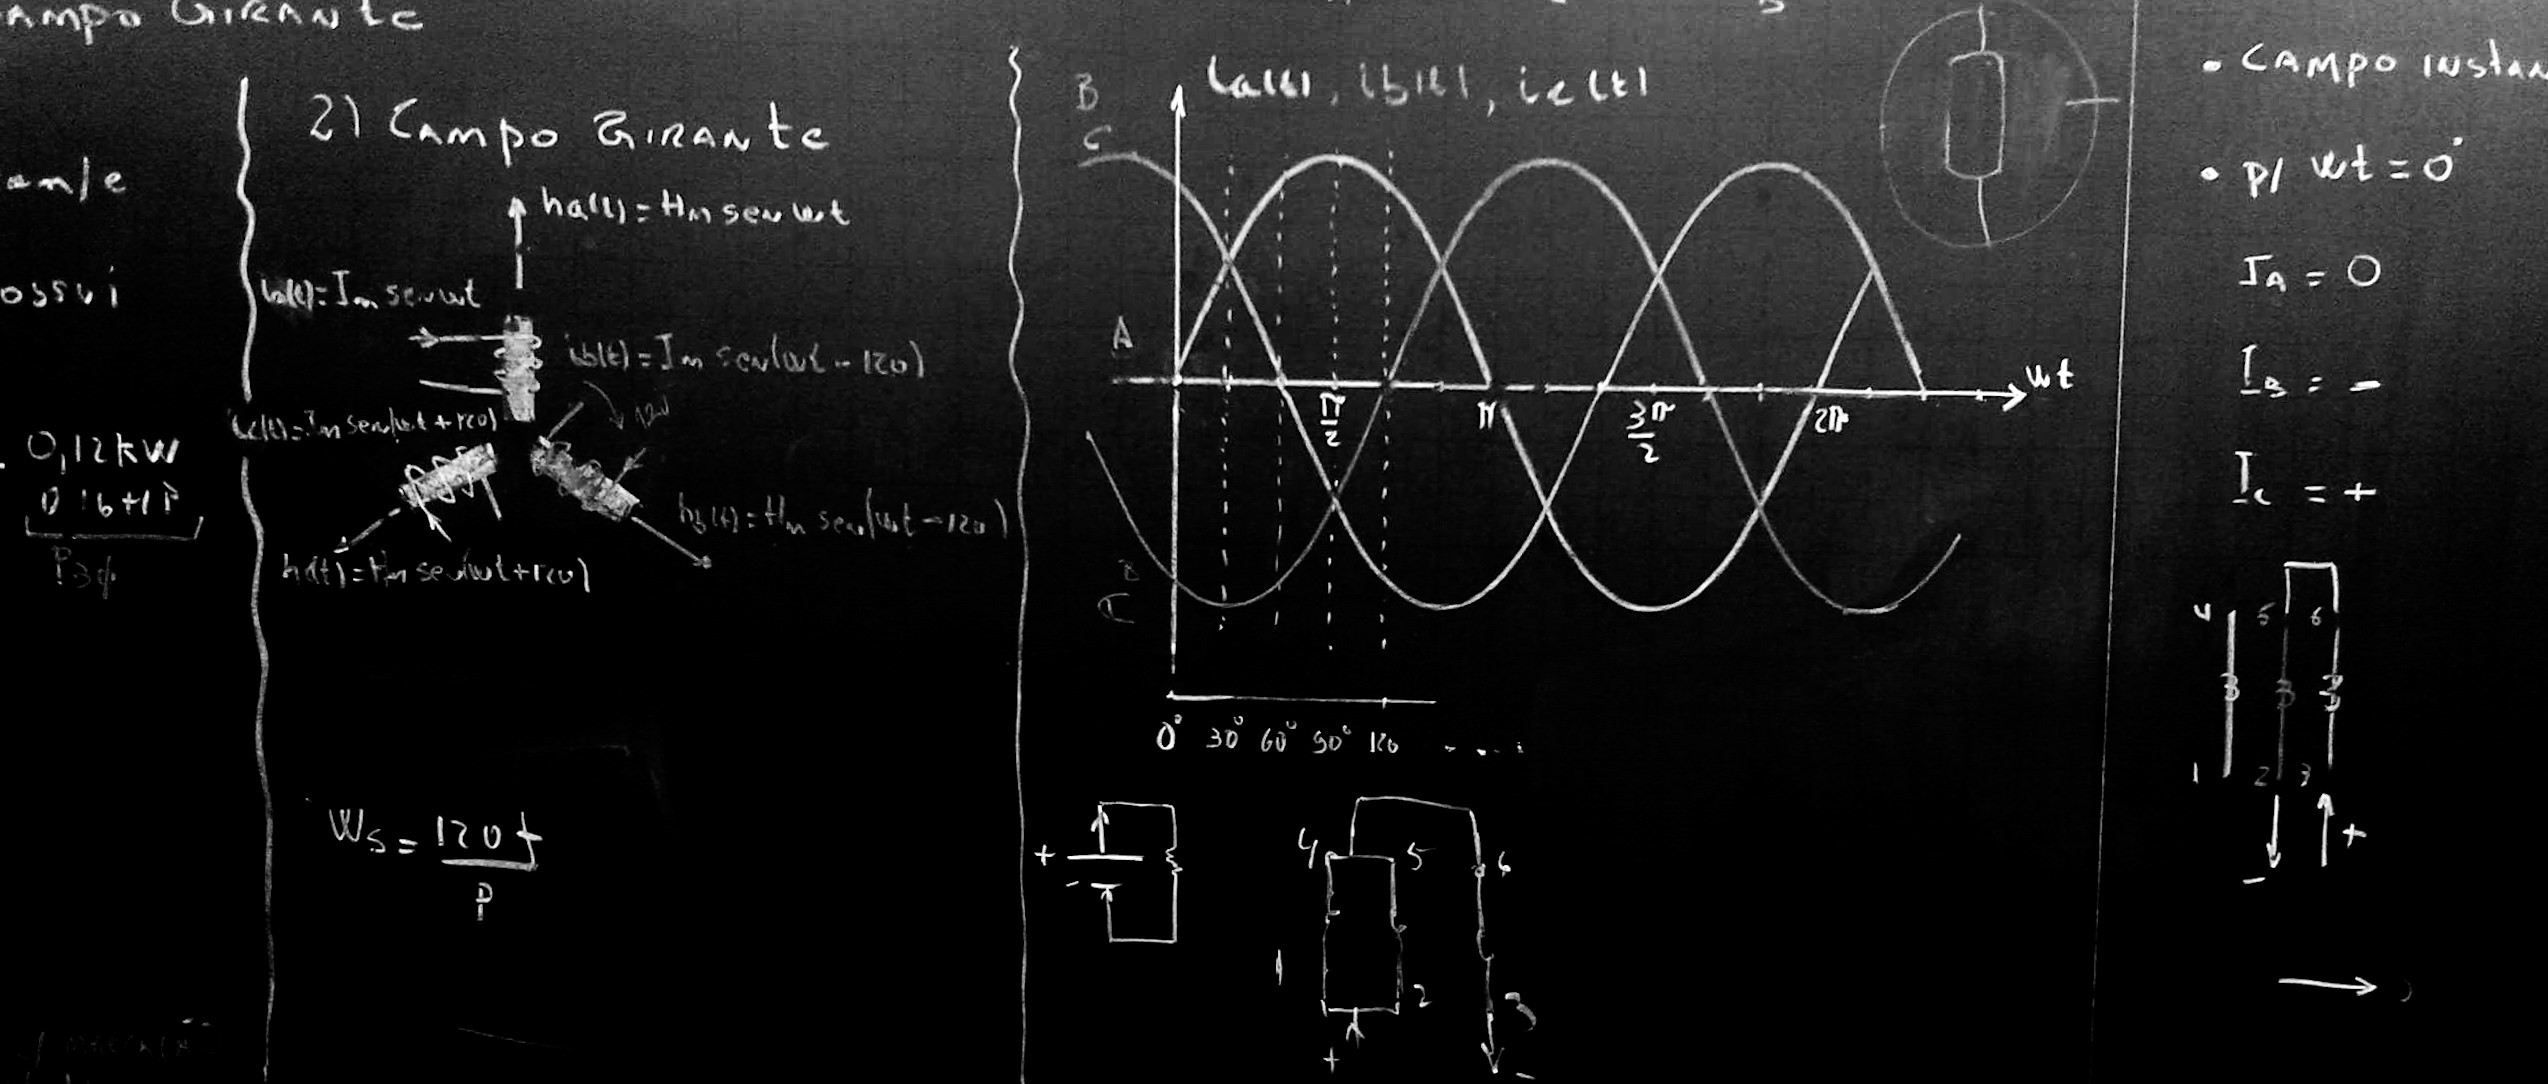 Campo Girante
an/e
ossui
0,12kW
P3φ
2) Campo Girante
ha(t) = Hm sen wt
ia(t) = Im sen wt
ib(t) = Im sen(wt - 120)
ic(t) = Im sen(wt + 120)
120
hb(t) = Hm sen(wt - 120)
h(t) = Hm sen(wt + 120)
Ws = 120 f
P
ia(t), ib(t), ic(t)
B
C
A
wt
π/2
π
3π/2
2π
B
C
0° 30° 60° 90° 120 ....
+
-
4 5 6
1 2 3
+ -
• CAMPO INSTAN
• P/ wt = 0°
IA = 0
IB = -
IC = +
4 5 6
1 2 3
- +